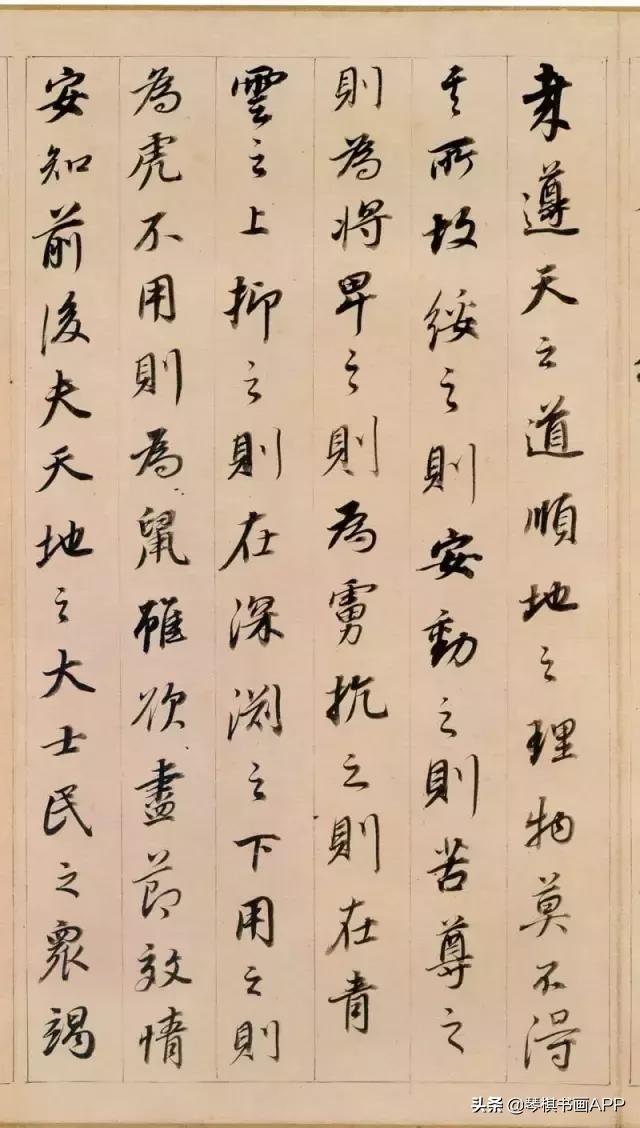 遵天之道順地之理物莫不得
其所故綏之則安動之則苦尊之
則為將卑之則為虜抗之則在青
雲之上抑之則在深淵之下用之則
為虎不用則為鼠雖欲盡節效情
安知前後夫天地之大士民之眾竭
头条 @琴棋书画APP